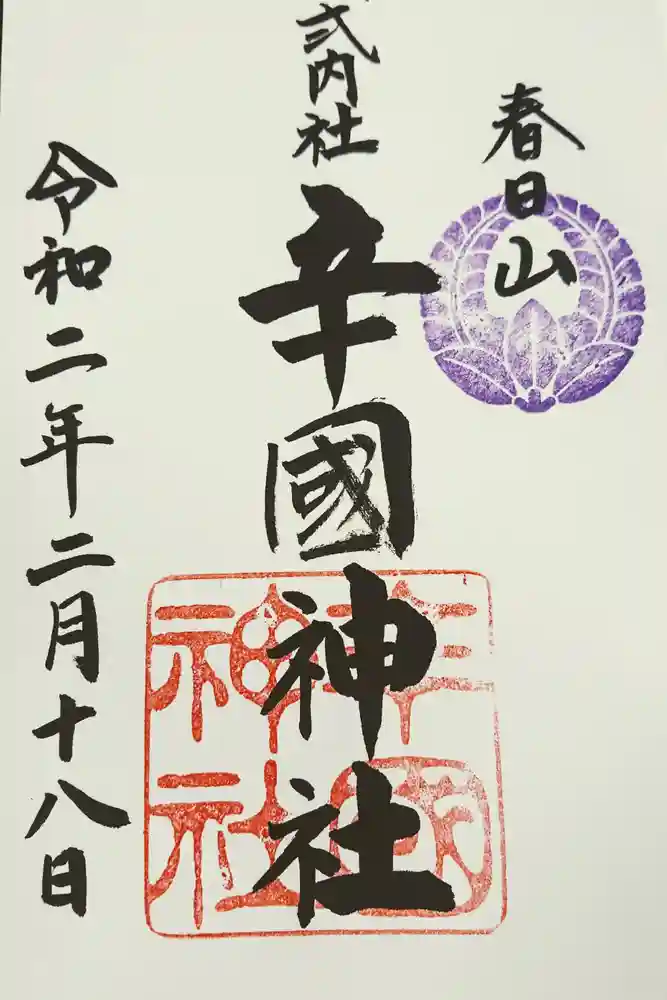 春日山
式内社
辛國神社
令和二年二月十八日
辛國神社